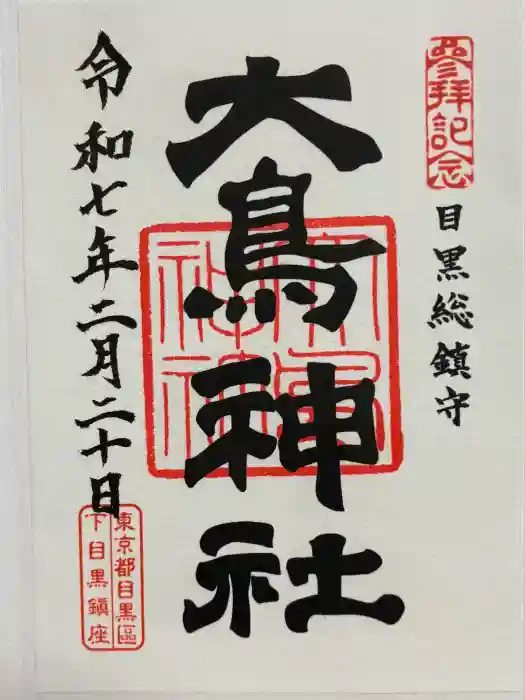 參拜記念
目黒総鎮守
大鳥神社
大鳥神社
令和七年二月二十日
東京都目黒區
下目黒鎮座